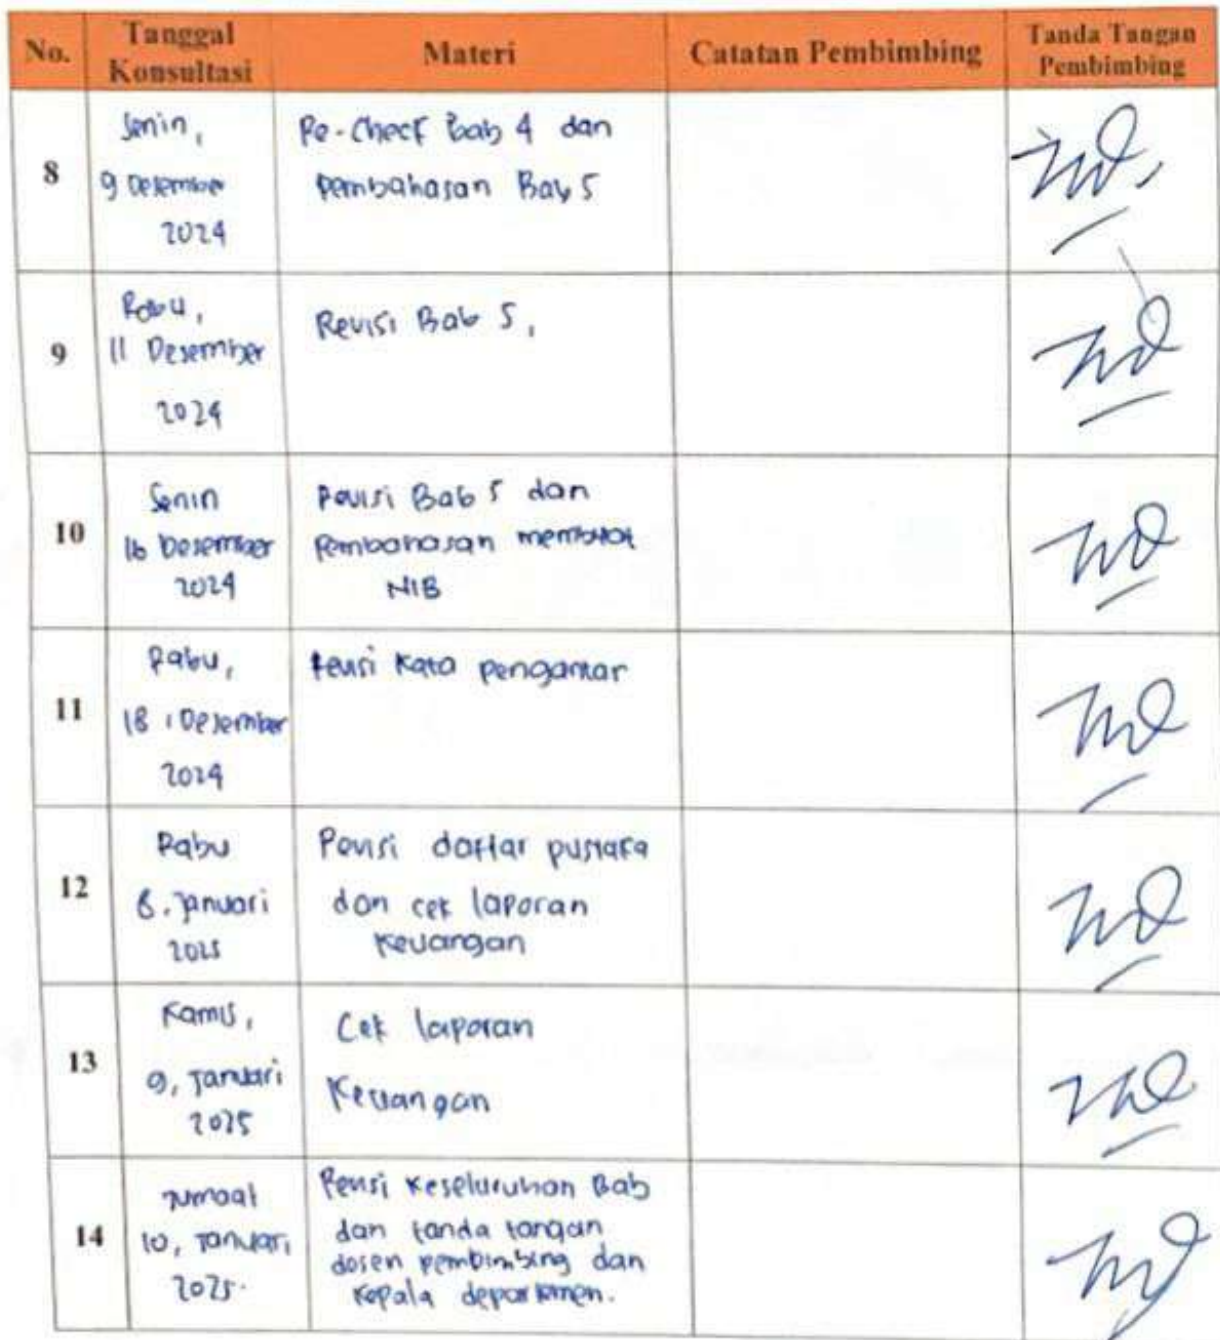 No.
Tanggal
Konsultasi
Materi
Catatan Pembimbing
Tanda Tangan
Pembimbing
8
Senin,
9 Desember
2024
Re-Check Bab 4 dan
pembahasan Bab 5
9
Rabu,
11 Desember
2024
Revisi Bab 5,
10
Senin
16 Desember
2024
Revisi Bab 5 dan
Pembahasan membuat
NIB
11
Rabu,
18, Desember
2024
Revisi Kata pengantar
12
Rabu
8, Januari
2025
Revisi daftar pustaka
dan cek laporan
Keuangan
13
Kamis,
9, Januari
2025
Cek laporan
Keuangan
14
Jumaat
10, Januari,
2025.
Revisi Keseluruhan Bab
dan tanda tangan
dosen pembimbing dan
Kepala departemen.